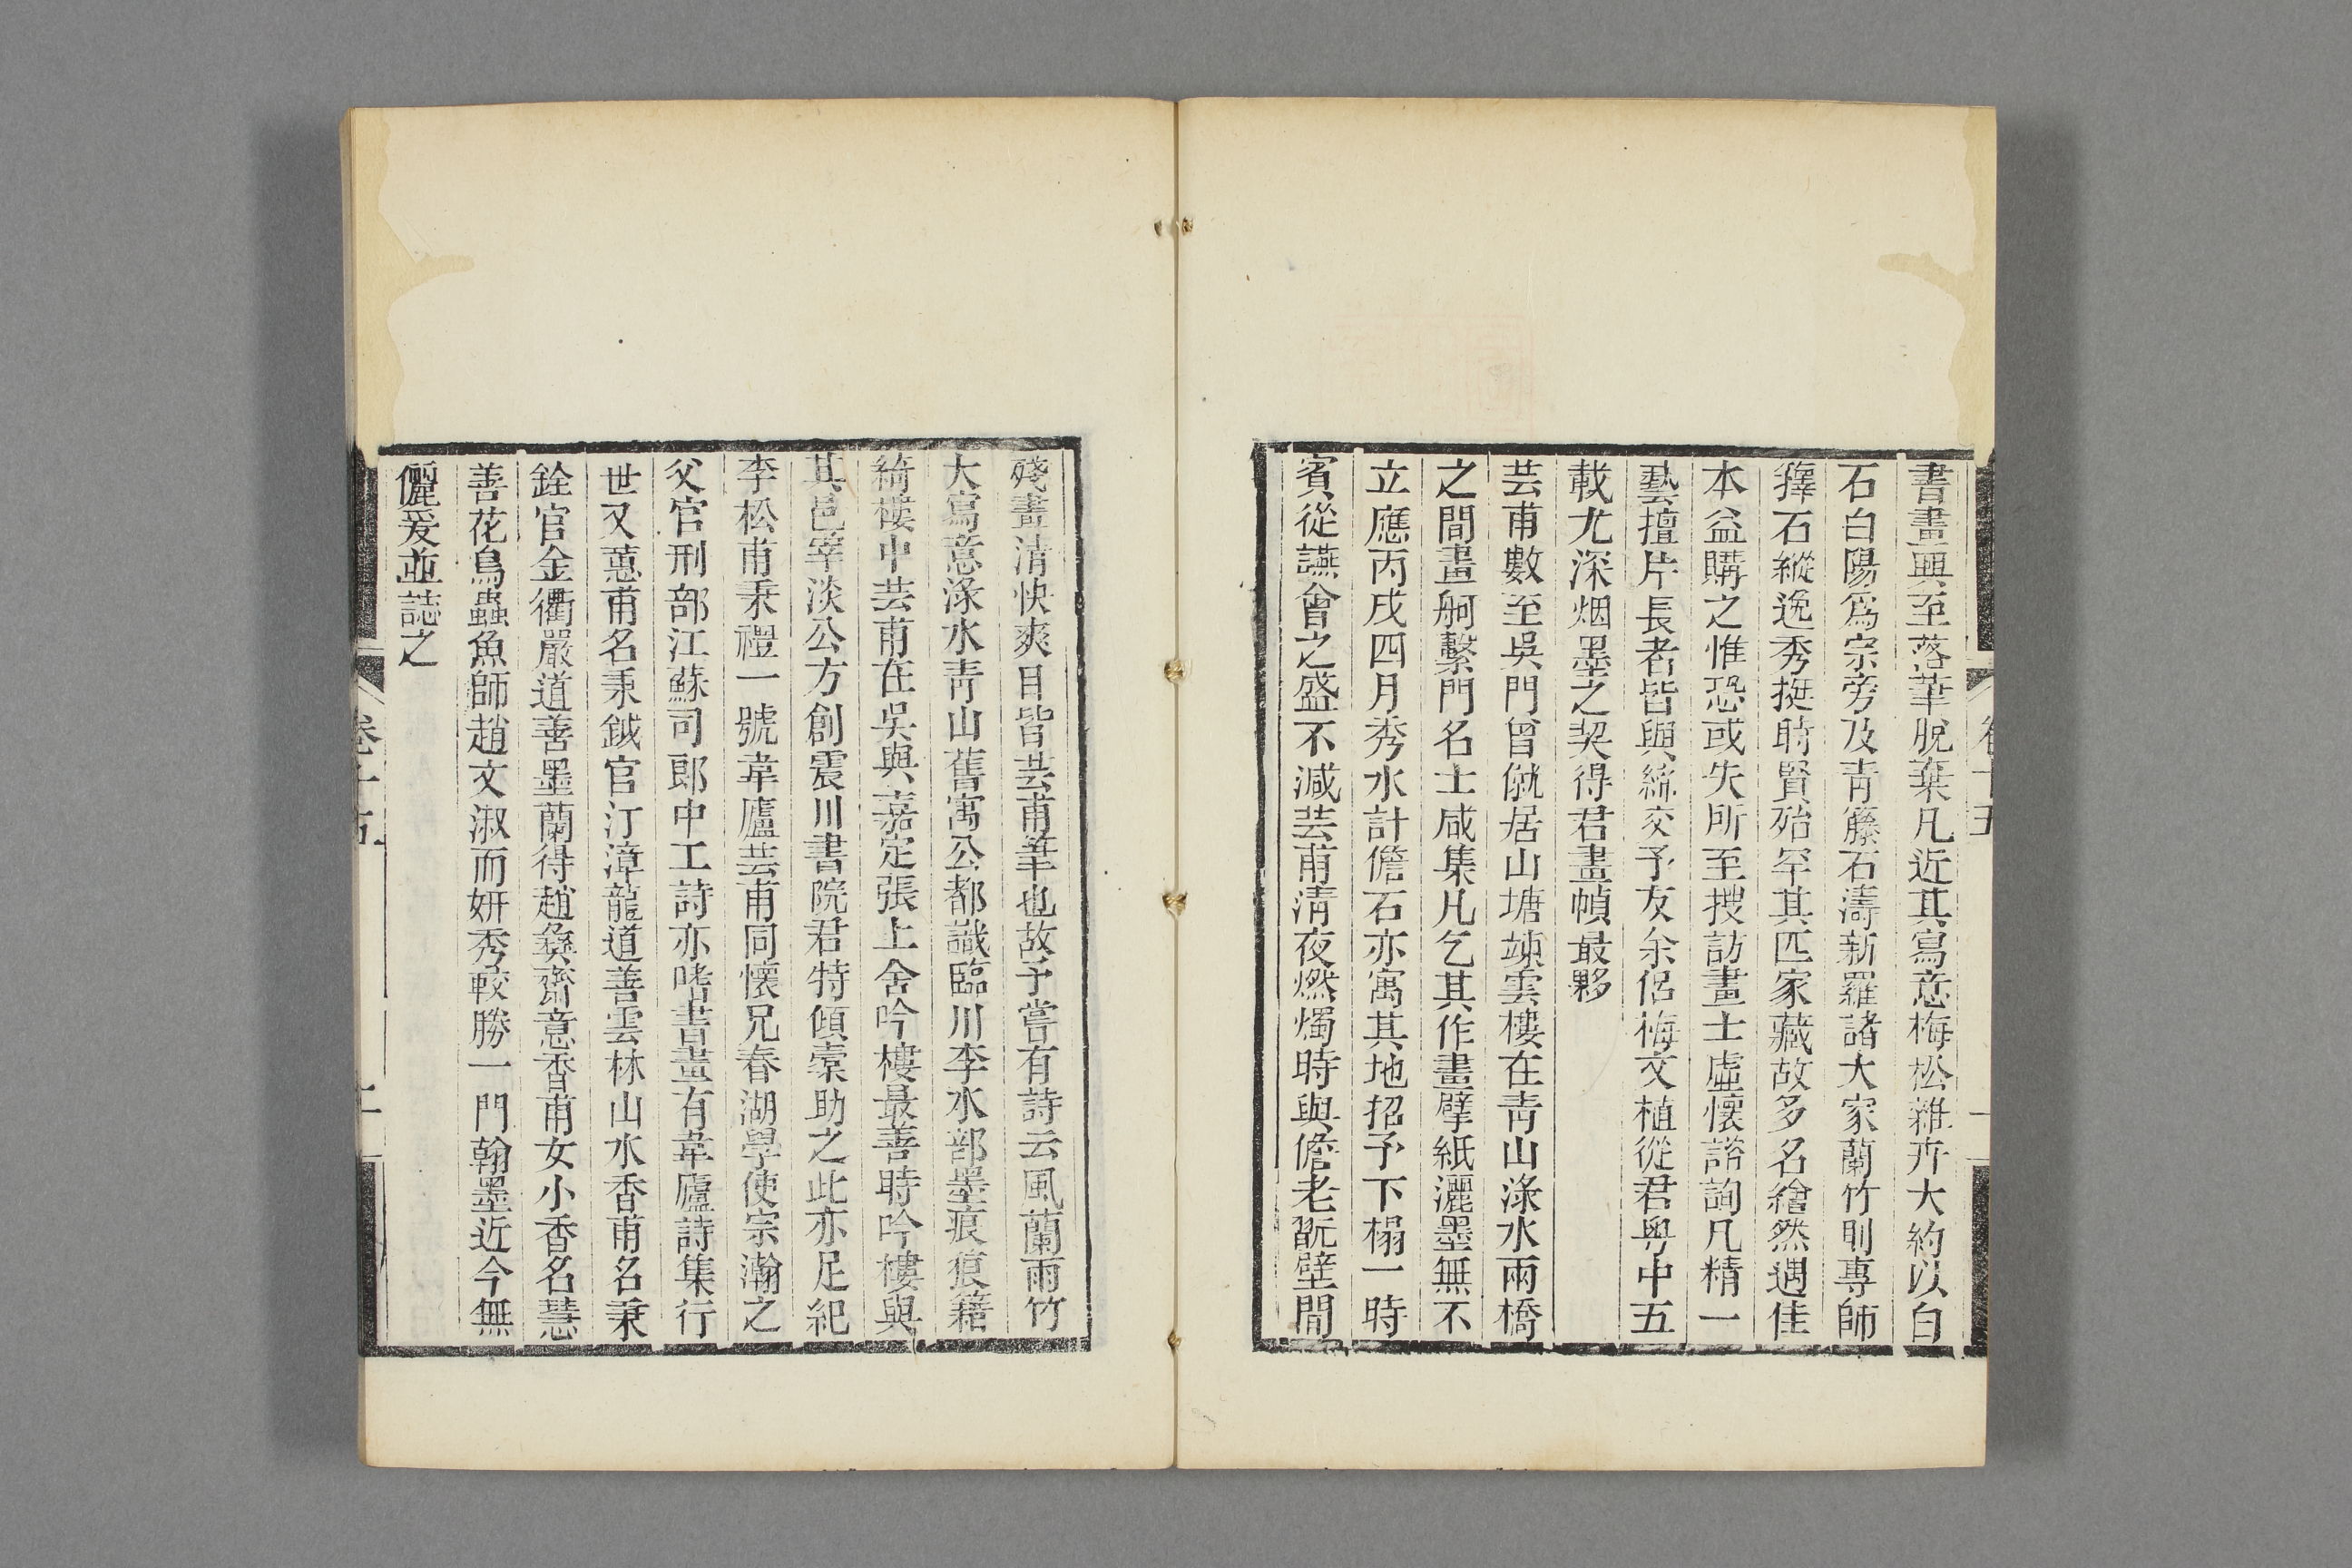 書畫興至落筆脫棄凡近其寫意梅松雜卉大約以白
石白陽爲宗旁及青籐石濤新羅諸大家蘭竹則專師
籜石縱逸秀挺時賢殆罕其匹家藏故多名繪然遇佳
本益購之惟恐或失所至搜訪畫士虛懷諮詢凡精一
藝擅片長者皆與締交予友余侶梅文植從君粤中五
載尤深烟墨之契得君畫幀最夥
芸甫數至吳門曾僦居山塘靖雲樓在青山淥水兩橋
之間畫舸繫門名士咸集凡乞其作畫擘紙灑墨無不
立應丙戌四月秀水計儋石亦寓其地招予下榻一時
賓從讌會之盛不減芸甫清夜燃燭時與儋老翫壁間
殘畫清快爽目皆芸甫筆也故予嘗有詩云風蘭雨竹
大寫意淥水青山舊寓公都識臨川李水部墨痕痕籍
綺樓中芸甫在吳與嘉定張上舍吟樓最善時吟樓與
其邑宰淡公方創震川書院君特傾橐助之此亦足紀
李松甫秉禮一號韋廬芸甫同懷兄春湖學使宗瀚之
父官刑部江蘇司郎中工詩亦嗜書畫有韋廬詩集行
世又蕙甫名秉鉞官汀漳龍道善雲林山水香甫名秉
銓官金衢嚴道善墨蘭得趙彝齋意香甫女小香名慧
善花鳥蟲魚師趙文淑而妍秀較勝一門翰墨近今無
儷爰並誌之
卷十五